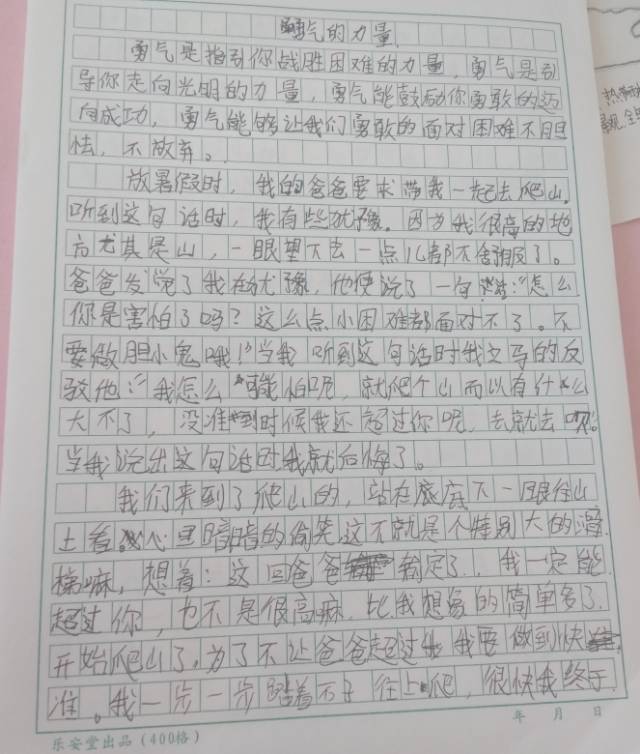 勇气的力量
勇气是指引你战胜困难的力量，勇气是引
导你走向光明的力量，勇气能鼓励你勇敢的迈
向成功，勇气能够让我们勇敢的面对困难不胆
怯，不放弃。
放暑假时，我的爸爸要求带我一起去爬山。
听到这句话时，我有些犹豫。因为我很高的地
方尤其是山，一眼望下去一点儿都不舍
了。
爸爸发觉了我在犹豫，他便说了一句："怎么
你是害怕了吗？这么点小困难都面对不了。不
要做胆小鬼哦！"当我听到这句话时我立马的反
驳他："我怎么可能怕呢，就爬个山而以有什么
大不了，没准到时候我还超过你呢，去就去呗。
当我说出这句话时我就后悔了。
我们来到了爬山的，站在底下一眼往山
上看，心里暗暗的偷笑这不就是个特别大的滑
梯嘛，想着：这回爸爸搞定了，我一定能
超过你，也不是很高嘛，比我想象的简单多了。
开始爬山了，为了不让爸爸超过我要做到快
准。我一步一步踏着石子往上爬，很快我终于
年 月 日
乐安堂出品（400格）
热带